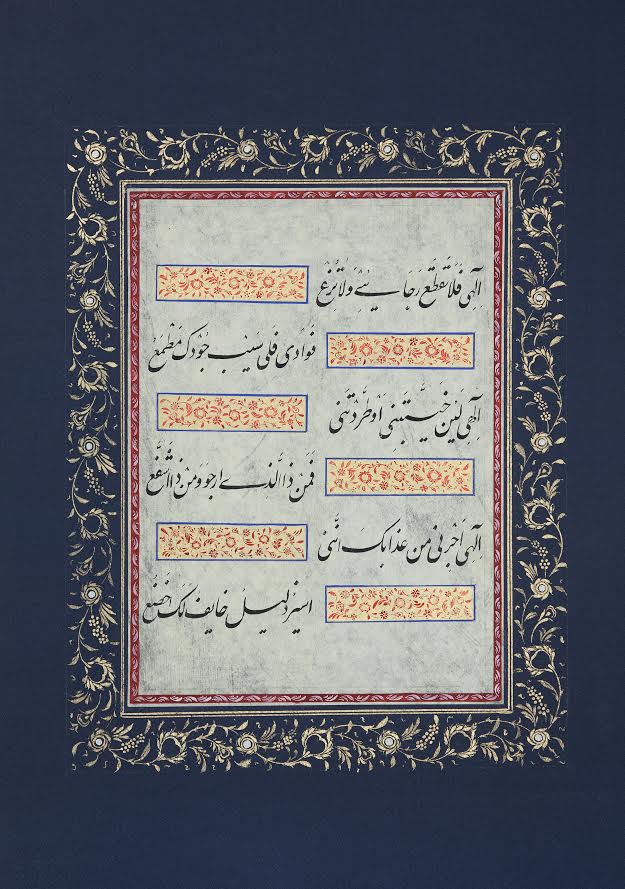 اِلٰهِی فَلَا تَقْطَعْ رَجَایِٔی وَلَا تُزِغْ
فُوَادِی فَلِی سَیْبِ جُودِکَ مَطْمَعُ
اِلٰهِی لَئِنْ خَیَّبْتَنِی اَوْ طَرَدْتَنِی
فَمَنْ ذَا الَّذِی اَرْجُو وَمَنْ ذَا اُشَفِّعُ
اِلٰهِی اَجِرْنِی مِنْ عَذَابِکَ اِنَّنِی
اَسِیرٌ ذَلِیلٌ خَایِفٌ لَکَ اَخْضَعُ